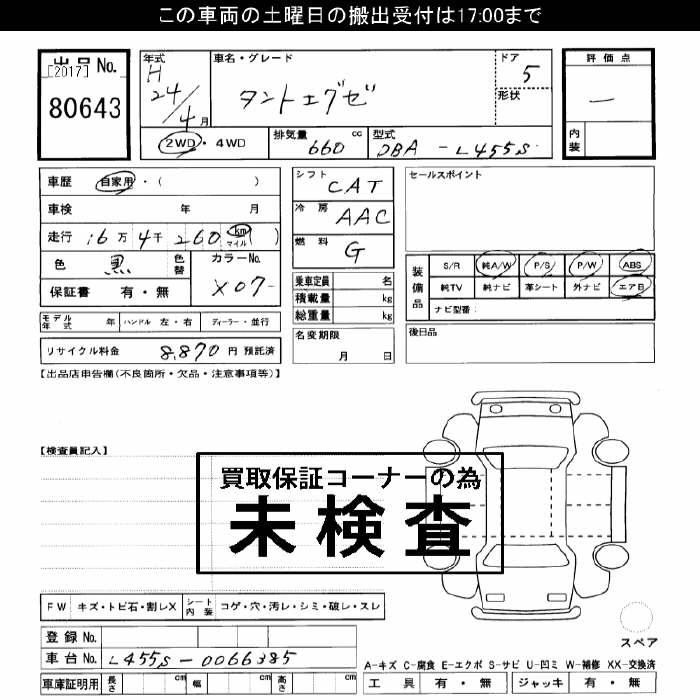 この車両の土曜日の搬出受付は17:00まで
出品No.
[2017]
80643
年式
H
24/4月
車名・グレード
タントエグゼ
ドア
5
形状
評価点
―
内装
2WD・4WD
排気量
660 cc
型式
DBA-L455S
車歴 自家用・( )
車検 年 月
走行 16万4千260 km マイル ( )
色 黒 色替
カラーNo.
X07-
保証書 有・無
シフト
CAT
冷房
AAC
燃料
G
乗車定員 名
積載量 kg
総重量 kg
名変期限
月 日
セールスポイント
装備品
S/R 純A/W P/S P/W ABS
純TV 純ナビ 革シート 外ナビ エアB
ナビ型番:
後日品
モデル年式 年 ハンドル 左・右 ディーラー・並行
リサイクル料金 8,870円 預託済
【出品店申告欄(不良箇所・欠品・注意事項等)】
【検査員記入】
買取保証コーナーの為
未検査
FW キズ・トビ石・割レX シート内装 コゲ・穴・汚レ・シミ・破レ・スレ
登録No.
車台No. L455S-0066385
車庫証明用 長さ cm 幅 cm 高さ cm
スペア
A-キズ C-腐食 E-エクボ S-サビ U-凹ミ W-補修 XX-交換済
工具 有・無 ジャッキ 有・無